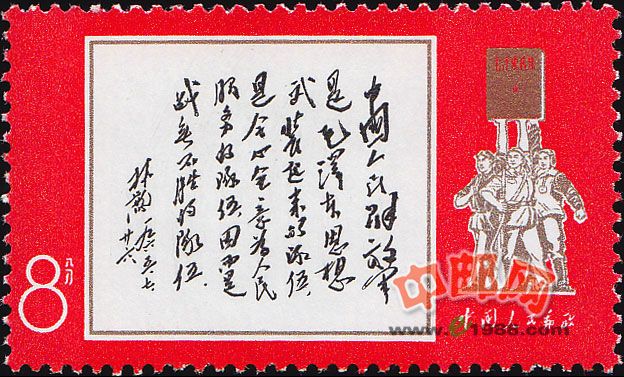 中國人民解放军
是毛澤东思想
武装起来的隊伍，
是全心全意为人民
服务的隊伍，因而是
战无不胜的隊伍。
林彪 一九六五、七、
廿六
8 八分
中国人民邮政
中邮网
www.e1988.com